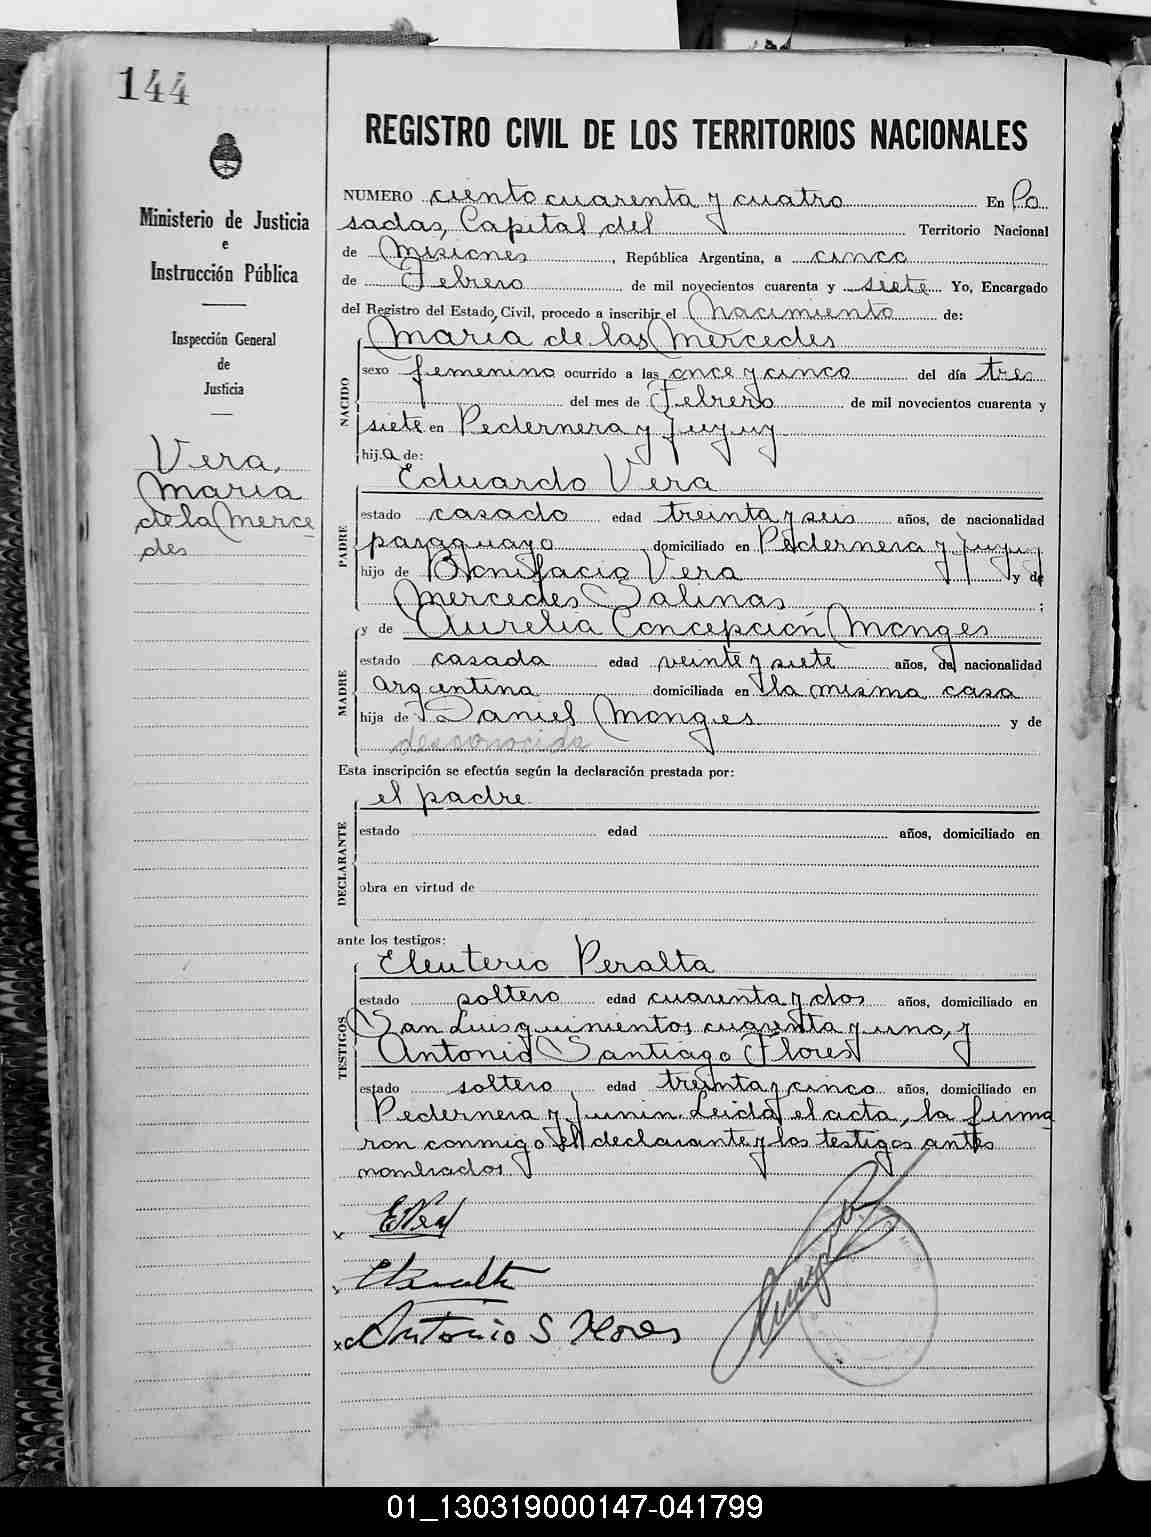 144
Ministerio de Justicia
e
Instrucción Pública
Inspección General
de
Justicia
Vera,
Maria
de la Merce
des
REGISTRO CIVIL DE LOS TERRITORIOS NACIONALES
NUMERO ciento cuarenta y cuatro En Po
sadas, Capital del Territorio Nacional
de Misiones, República Argentina, a cinco
de Febrero de mil novecientos cuarenta y siete Yo, Encargado
del Registro del Estado Civil, procedo a inscribir el Nacimiento de:
Maria de las Mercedes
NACIDO
sexo femenino ocurrido a las once y cinco del día tres
del mes de Febrero de mil novecientos cuarenta y
siete en Pedernera y Jujuy
hija de:
Eduardo Vera
PADRE
estado casado edad treinta y seis años, de nacionalidad
paraguayo domiciliado en Pedernera y Jujuy
hijo de Bonifacio Vera y de
Mercedes Salinas;
y de Aurelia Concepción Monges
MADRE
estado casada edad veinte y siete años, de nacionalidad
argentina domiciliada en la misma casa
hija de Daniel Monges y de
desconocida
Esta inscripción se efectúa según la declaración prestada por:
el padre
DECLARANTE
estado edad años, domiciliado en
obra en virtud de
ante los testigos:
Eleuterio Peralta
TESTIGOS
estado soltero edad cuarenta y dos años, domiciliado en
San Luis quinientos cuarenta y uno, y
Antonio Santiago Flores
estado soltero edad treinta y cinco años, domiciliado en
Pedernera y Junin. Leida el acta, la firma
ron conmigo el declarante y los testigos antes
nombrados
EVera
EPeralta
Antonio S Flores
01_130319000147-041799